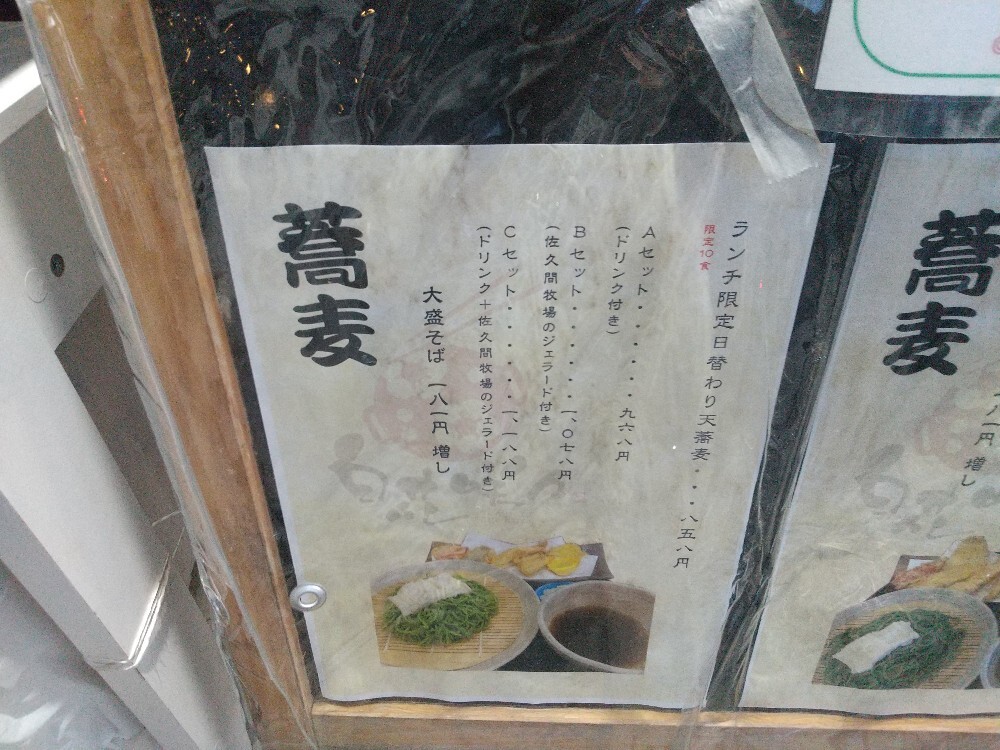 ランチ限定日替わり天蕎麦・・・八五八円
限定10食
Aセット・・・・・・九六八円
(ドリンク付き)
Bセット・・・・・・一、〇七八円
(佐久間牧場のジェラード付き)
Cセット・・・・・・一、一八八円
(ドリンク+佐久間牧場のジェラード付き)
大盛そば 一八一円 増し
蕎麦
八一円 増し
蕎麦